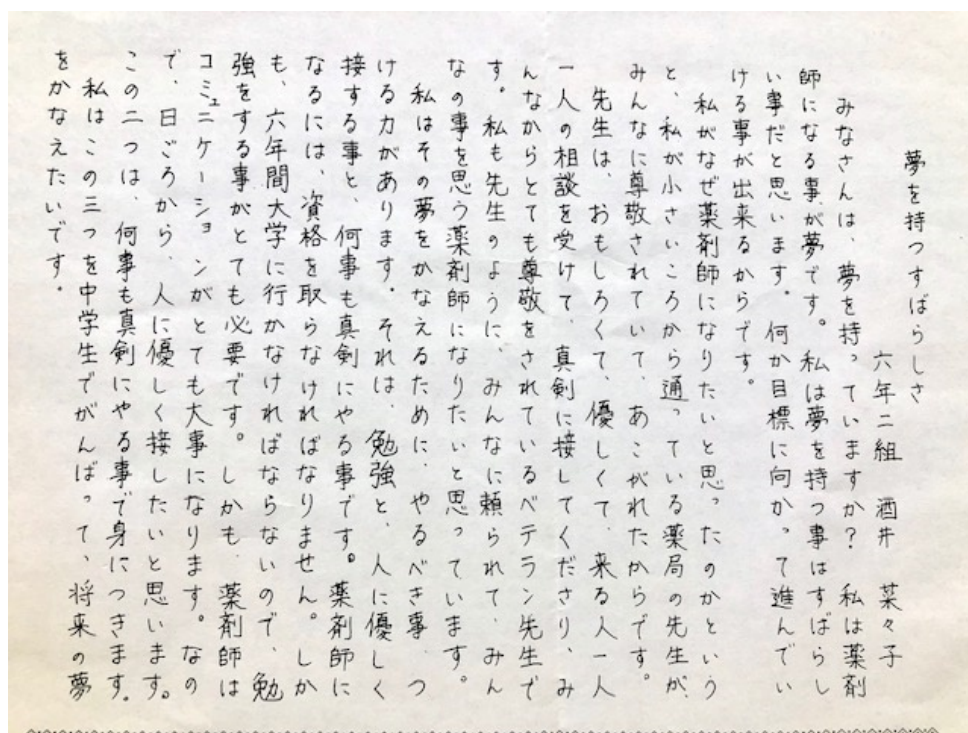 夢を持つすばらしさ
六年二組 酒井 菜々子
みなさんは、夢を持っていますか？ 私は薬剤
師になる事が夢です。私は夢を持つ事はすばらし
い事だと思います。何か目標に向かって進んでい
ける事が出来るからです。
私がなぜ薬剤師になりたいと思ったのかという
と、私が小さいころから通っている薬局の先生が、
みんなに尊敬されていて、あこがれたからです。
先生は、おもしろくて、優しくて、来る人一人
一人の相談を受けて、真剣に接してくださり、み
んなからとても尊敬をされているベテラン先生で
す。私も先生のように、みんなに頼られて、みん
なの事を思う薬剤師になりたいと思っています。
私はその夢をかなえるために、やるべき事、つ
ける力があります。それは、勉強と、人に優しく
接する事と、何事も真剣にやる事です。薬剤師に
なるには、資格を取らなければなりません。しか
も、六年間大学に行かなければならないので、勉
強をする事がとても必要です。しかも、薬剤師は
コミュニケーションがとても大事になります。なの
で、日ごろから、人に優しく接したいと思います。
この二つは、何事も真剣にやる事で身につきます。
私はこの三つを中学生でがんばって、将来の夢
をかなえたいです。